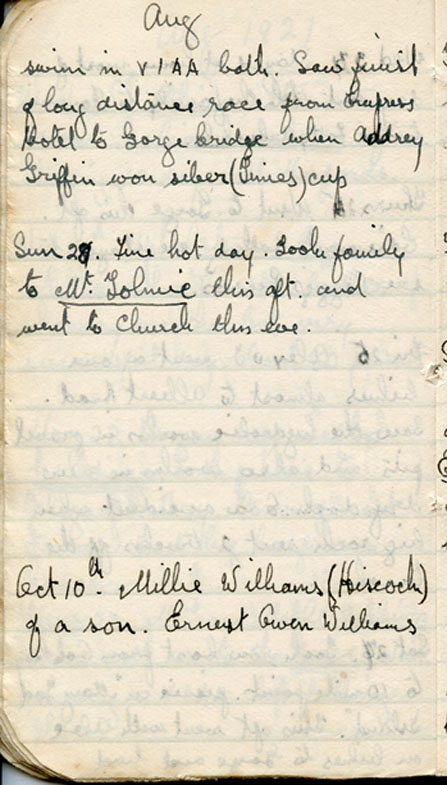 Aug
swim in VIAA both. Saw finish
of long distance race from Empress
Hotel to Gorge bridge when Audrey
Griffin won silver (Times) cup
Sun 28. Fine hot day. Took family
to Mt. Tolmie this aft. and
went to Church this eve.
Oct 10th. Millie Williams (Hiscock)
of a son. Ernest Owen Williams